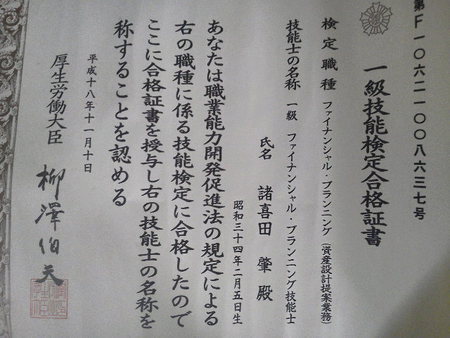 第F一〇六二一〇〇八六三七号
一級技能検定合格証書
検定職種 ファイナンシャル・プランニング(資産設計提案業務)
技能士の名称 一級 ファイナンシャル・プランニング技能士
氏名 諸喜田 肇 殿
昭和三十四年二月五日生
あなたは職業能力開発促進法の規定による
右の職種に係る技能検定に合格したので
ここに合格証書を授与し右の技能士の名称を
称することを認める
平成十八年十一月十日
厚生労働大臣 柳澤伯夫